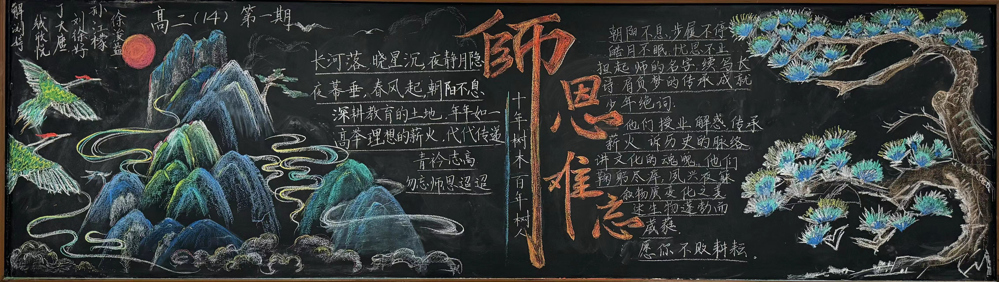 高二(14) 第一期
长河落,晓星沉,夜静月隐
夜幕垂,春风起,朝阳不息
深耕教育的土地,年年如一
高举理想的薪火,代代传递
青衿志高
勿忘师恩迢迢
師恩难忘
十年树木 百年树人
朝阳不息,步履不停
皓月不眠,忧思不止
担起师的名字,续写长
诗,肩负梦的传承,成就
少年绝词.
他们授业解惑,传承
薪火,诉历史的脉络,
讲文化的魂魄,他们
鞠躬尽瘁,夙兴夜寐
物质变化之美
让生物蓬勃而
葳蕤
愿你不败耕耘.